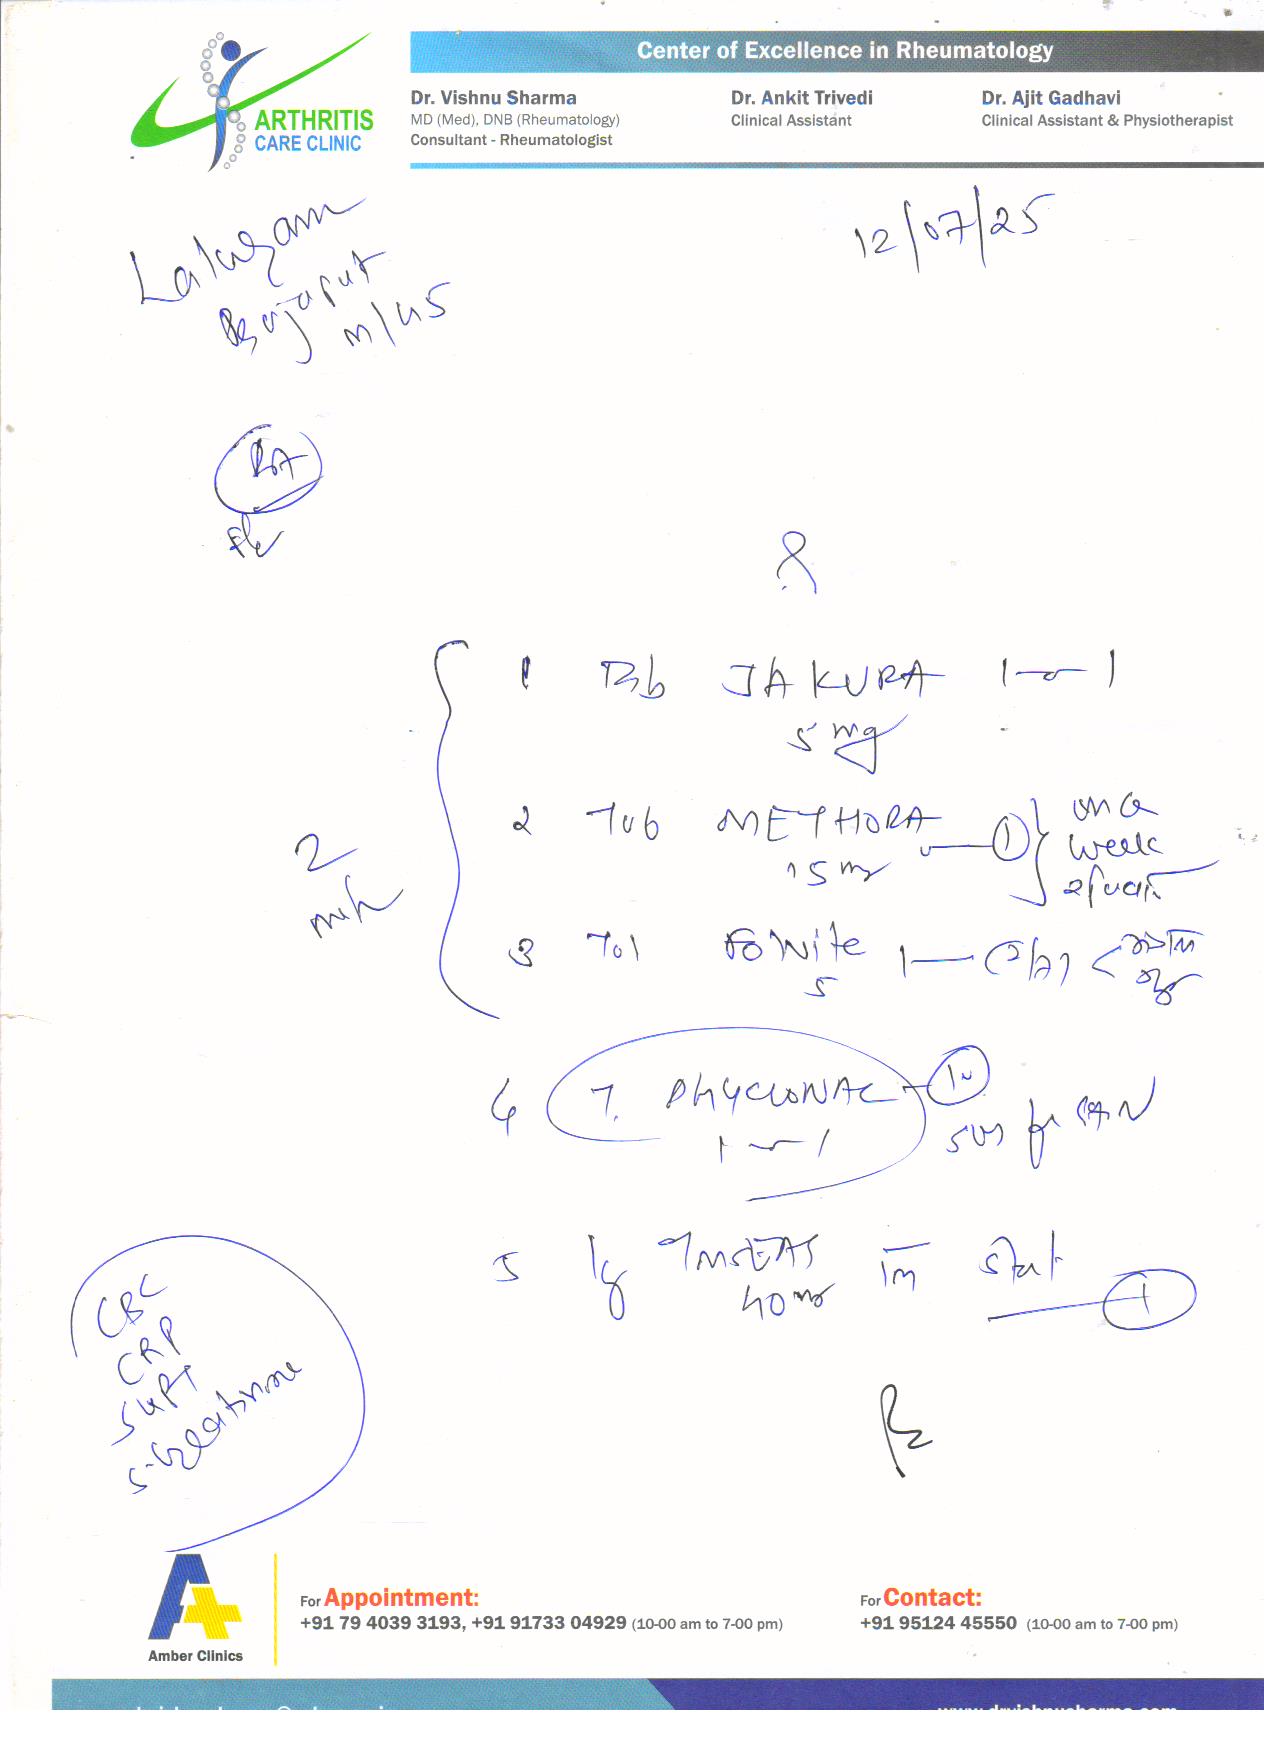 ARTHRITIS
CARE CLINIC
Center of Excellence in Rheumatology
Dr. Vishnu Sharma
MD (Med), DNB (Rheumatology)
Consultant - Rheumatologist
Dr. Ankit Trivedi
Clinical Assistant
Dr. Ajit Gadhavi
Clinical Assistant & Physiotherapist
12/07/25
M/45
RA
1 Tab JAKURA 1-0-1
5 mg
2 Tab METHORA 1
15 mg
week
3 FOWite
5
4 T. PHYCLONAC
1-0-1
SOS for PAIN
5 40 mg IM stat 1
CBC
CRP
SGPT
S. Creatinine
Amber Clinics
For Appointment:
+91 79 4039 3193, +91 91733 04929 (10-00 am to 7-00 pm)
For Contact:
+91 95124 45550 (10-00 am to 7-00 pm)